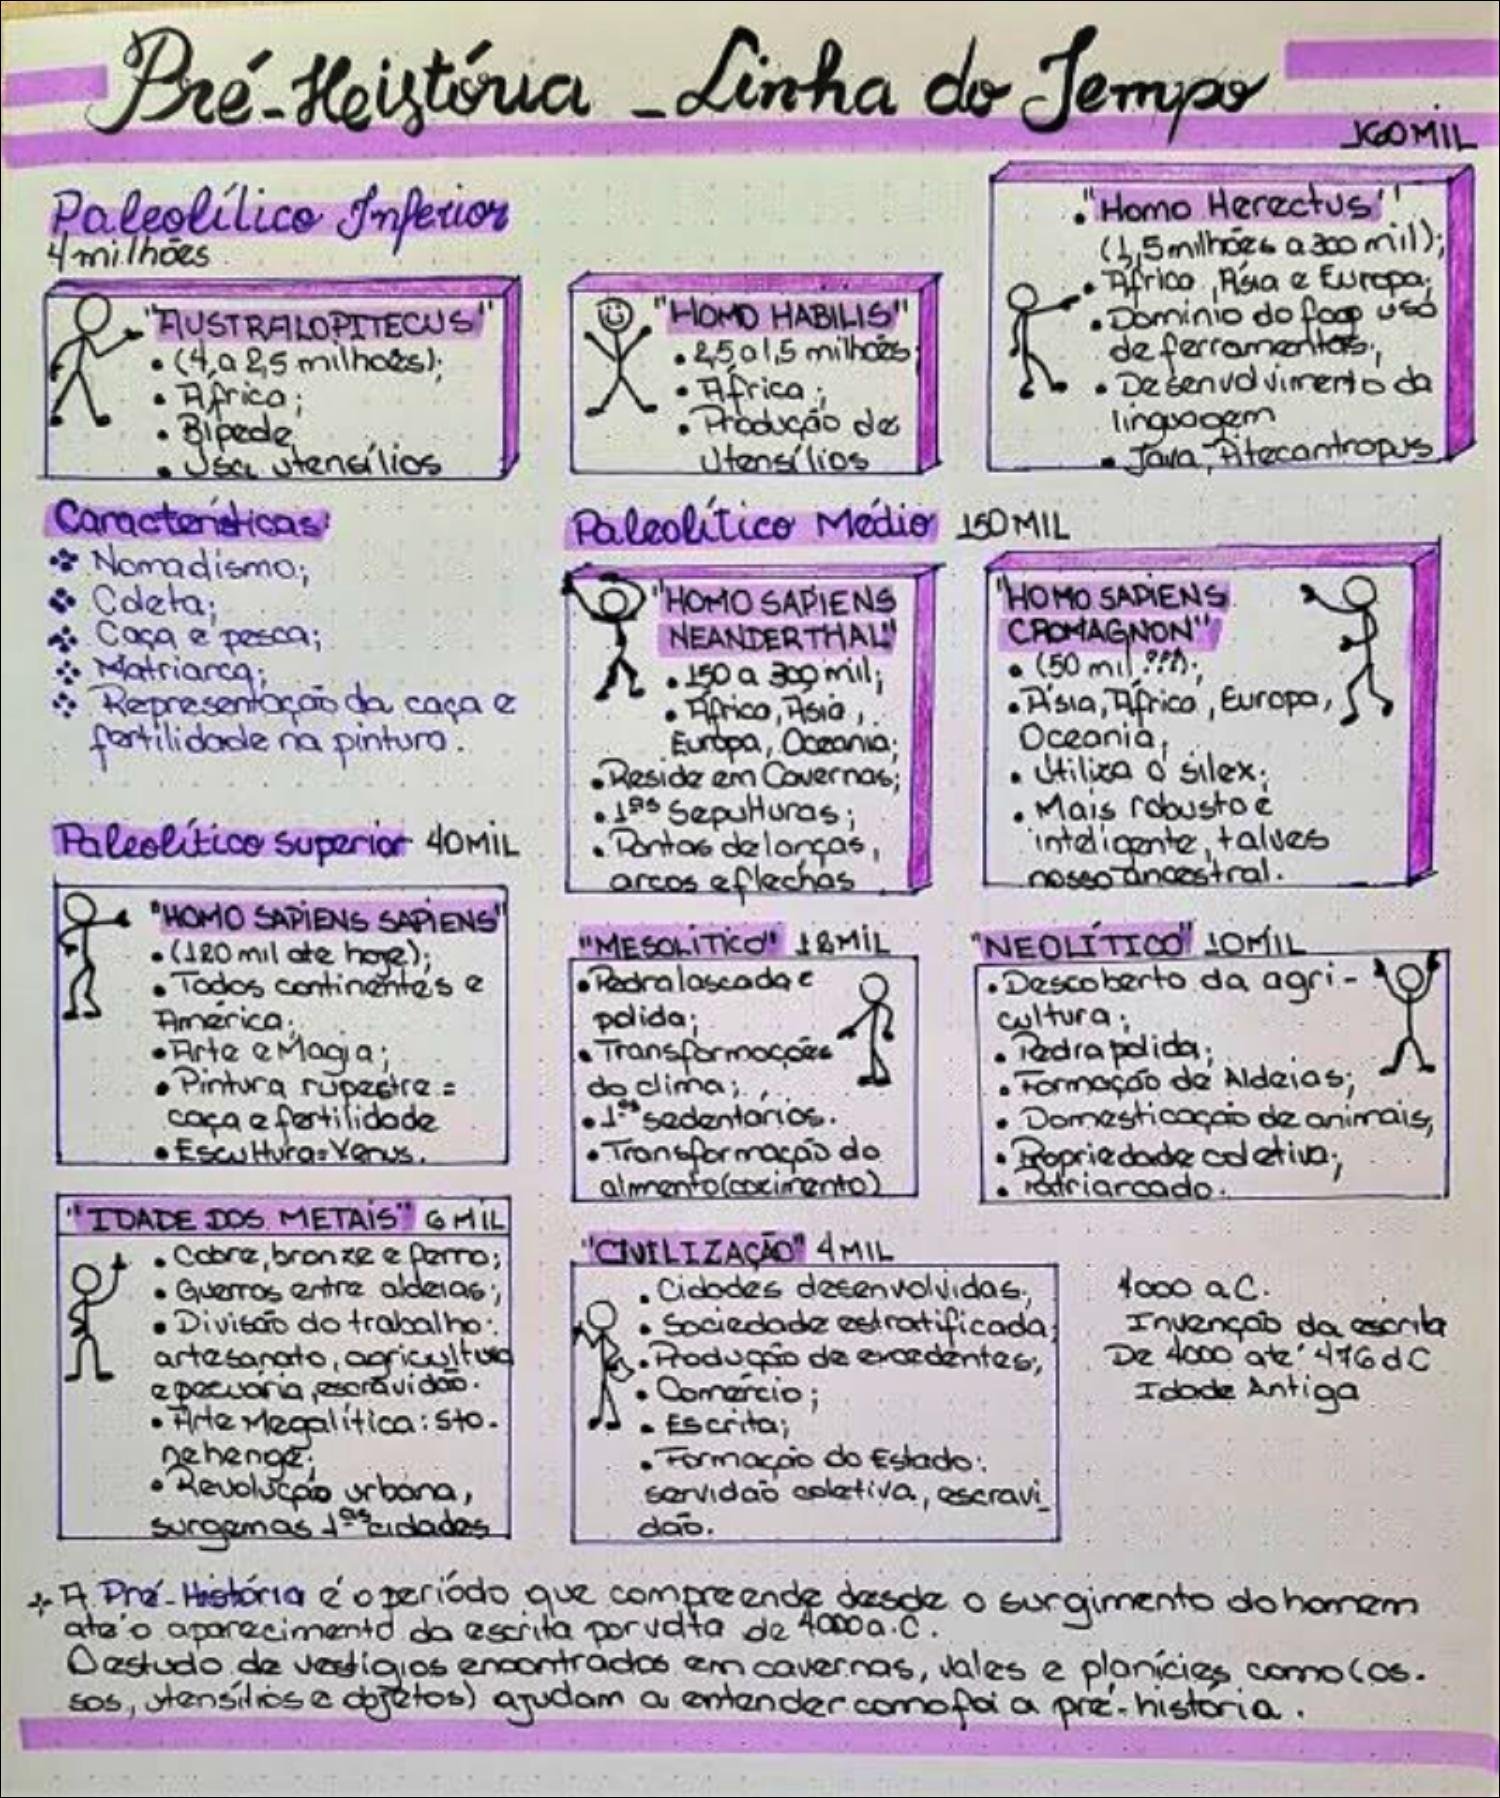 Pré-Heistória - Linha do Tempo
160MIL
Paleolílico Inferior
4 milhões
"AUSTRALOPITECUS"
• (4, a 2,5 milhões);
• África;
• Bípede
• Usa utensílios
"HOMO HABILIS"
• 2,5 a 1,5 milhões
• África;
• Produção de
Utensílios
• "Homo Herectus"
(1,5 milhões a 300 mil);
• África, Ásia e Europa;
• Domínio do fogo uso
de ferramentas;
• Desenvolvimento da
linguagem
• Java, Pitecantropus
Características:
Nomadismo;
Coleta;
Caça e pesca;
Matriarca;
Representação da caça e
fertilidade na pintura.
Paleolítico Médio 150 MIL
"HOMO SAPIENS
NEANDERTHAL"
• 150 a 300 mil;
• África, Ásia,
Europa, Oceania;
• Reside em Cavernas;
• 1ªs Sepulturas;
• Pontas de lanças,
arcos e flechas
"HOMO SAPIENS
CROMAGNON"
• (50 mil ???);
• Ásia, África, Europa,
Oceania,
• Utiliza o silex;
• Mais robusto e
inteligente, talves
nosso ancestral.
Paleolítico Superior 40MIL
"HOMO SAPIENS SAPIENS"
• (120 mil até hoje);
• Todos continentes e
América;
• Arte e Magia;
• Pintura rupestre =
caça e fertilidade
• Escultura = Venus.
"MESOLÍTICO" 12MIL
• Pedra lascada e
polida;
• Transformações
do clima;
• 1ºs sedentarios.
• Transformação do
almento (cozimento)
"NEOLÍTICO" 10MIL
• Descoberto da agri-
cultura;
• Pedra polida;
• Formação de Aldeias;
• Domesticação de animais,
• Propriedade coletiva;
• Patriarcado.
"IDADE DOS METAIS" 6 MIL
• Cobre, bronze e ferro;
• Guerras entre aldeias;
• Divisão do trabalho:
artesanato, agricultura
e pecuária, escravidão.
• Arte Megalítica: Sto-
nehenge;
• Revolução urbana,
surgem as 1ªs cidades
"CIVILIZAÇÃO" 4 MIL
• Cidades desenvolvidas;
• Sociedade estratificada;
• Produção de excedentes;
• Comércio;
• Escrita;
• Formação do Estado:
servidão coletiva, escravi-
dão.
4000 a.C.
Invenção da escrita
De 4000 até 476 d C
Idade Antiga
A Pré-História é o período que compreende desde o surgimento do homem
até o aparecimento da escrita por volta de 4000 a.C.
O estudo de vestígios encontrados em cavernas, vales e planícies como (os-
sos, utensílios e objetos) ajudam a entender como foi a pré-história.